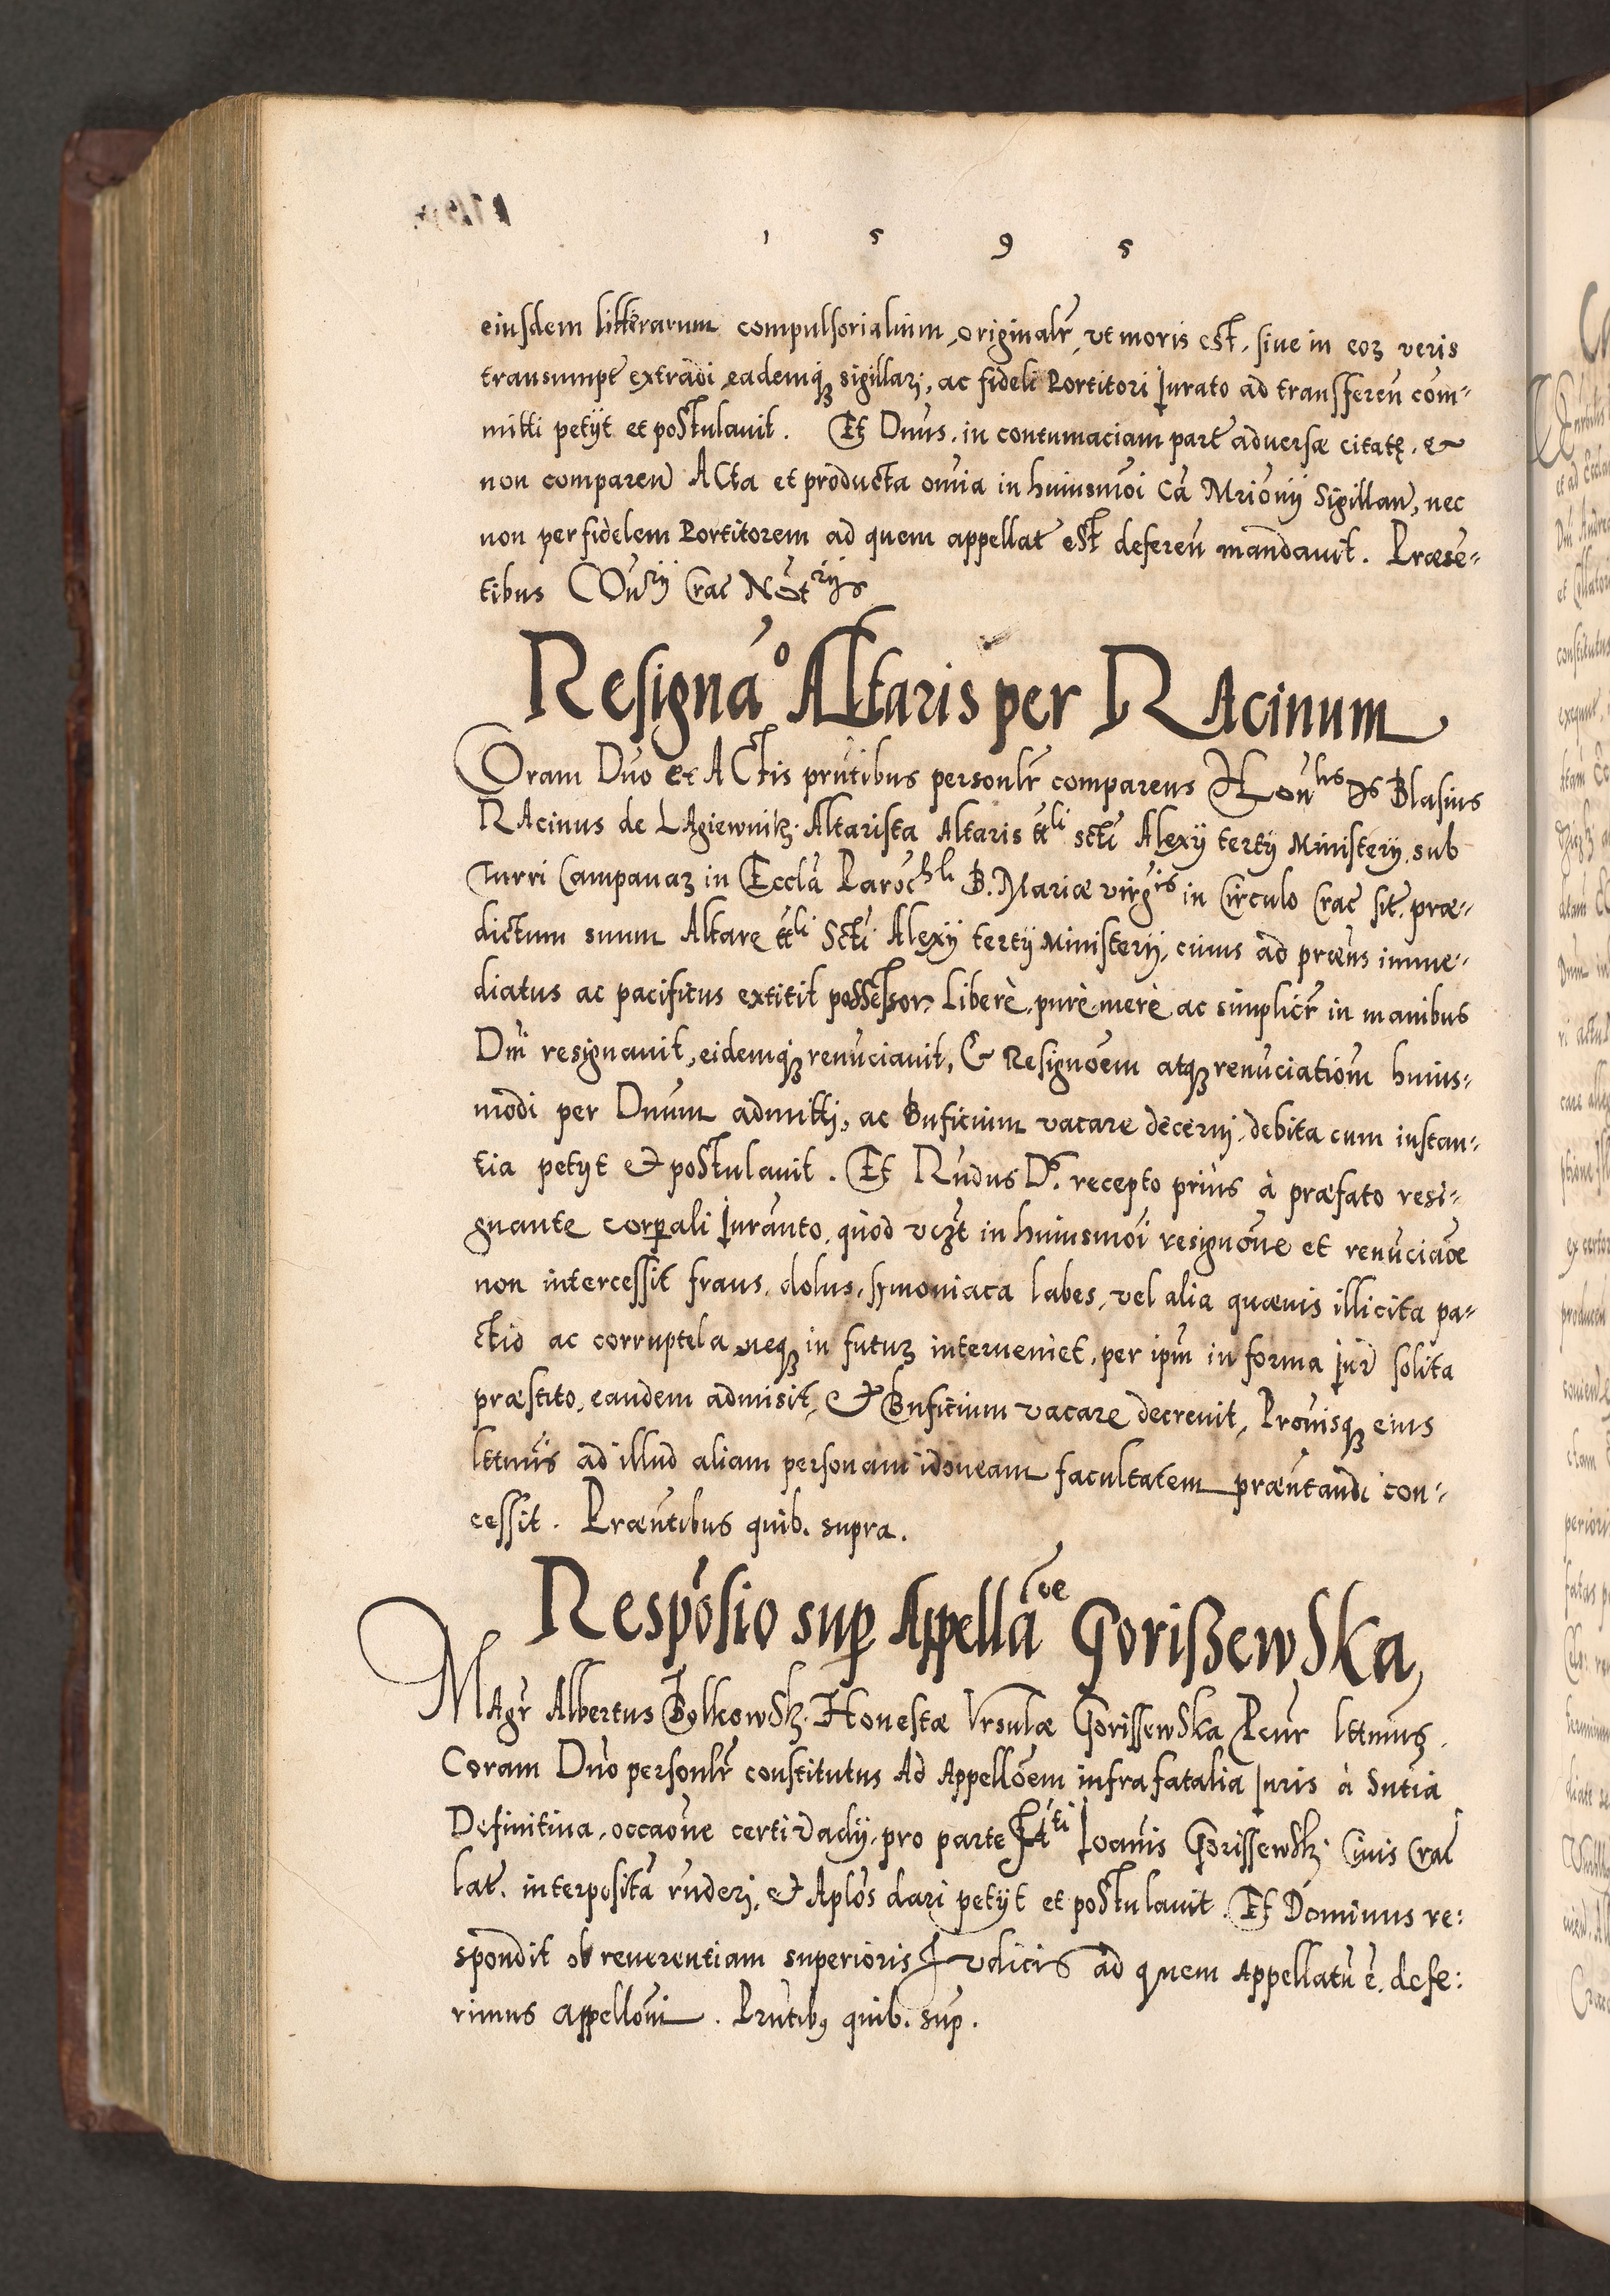 1 5 9 5
eiusdem litterarum compulsorialium, originalr̃, vt moris est, siue in eoꝝ veris
transumpt̃ extradi eademqꝫ sigillari, ac fideli Portitori Jurato ad transferen̄ com-
mitti petijt et postulauit. Et Dnūs in contumaciam part̃ aduersæ citatę, &
non comparen̄ Acta et producta omīa in huiusmōi cā Mrīonij Sigillan̄, nec
non per fidelem Portitorem ad quem appellat̃ est deferen̄ mandauit. Præse-
tibus Cons̄rij Crac̄ Nōtrijs
Resignāo Altaris per Racinum
Coram Dn̄o et Actis prn̄tibus personlr̃ comparens Honlis̄ Ds Blasius
Racinus de Lagiewniki Altarista Altaris ttli sctī Alexij tertij Ministerij, sub
Turri Campanaꝝ in Ecclā Parochli B. Mariæ virgis̄ in Circulo Crac̄ sit̃, præ-
dictum suum Altare ttli Sctī Alexij tertij Ministerij, cuius ad præn̄s imme-
diatus ac pacificus extitit possessor, Liberè, purè, merè ac simplicr̃ in manibus
Dnī resignauit, eidemqꝫ renūciauit, & Resignōem atqꝫ renūciatiōm huius-
modi per Dnūm admitti, ac Bn̄ficium vacare decerni, debita cum instan-
tia petijt & postulauit. Et Rn̄dus Ds. recepto prius à præfato resi-
gnante corporali Juran̄to, quod vcꝫt in huiusmōi resignōne et renūciāōe
non intercessit fraus, dolus, symoniaca labes, vel alia quæuis illicita pa-
ctio ac corruptela neqꝫ in futuꝝ interueniet, per ipm̄ in forma Jur̄ solita
præstito, eandem admisit, & Bn̄ficium vacare decreuit, Prouisqꝫ eius
lttmīs ad illud aliam personam idoneam facultatem præn̄tandi con-
cessit. Præn̄tibus quib. supra.
Respōsio sup̱ Appellāōe Gorißewska
Magr̃ Albertus Bylkowski Honestæ Vrsulæ Gorissewska Pcur̄ lttmūs,
Coram Dn̄o personlr̃ constitutus Ad Appellōem infra fatalia Juris à Sn̄tia
Definitiua, occaōne certi Vadij, pro parte Ftīti Joannis Gorissewski Ciuis Crac̄
lat̃. interposita rn̄deri, & Aplos̄ dari petijt et postulauit. Et Dominus re:
spondit ob reuerentiam superioris Judicis ad quem Appellatū ē. defe:
rimus appellōni. Prn̄tibꝰ quib. sup̱.